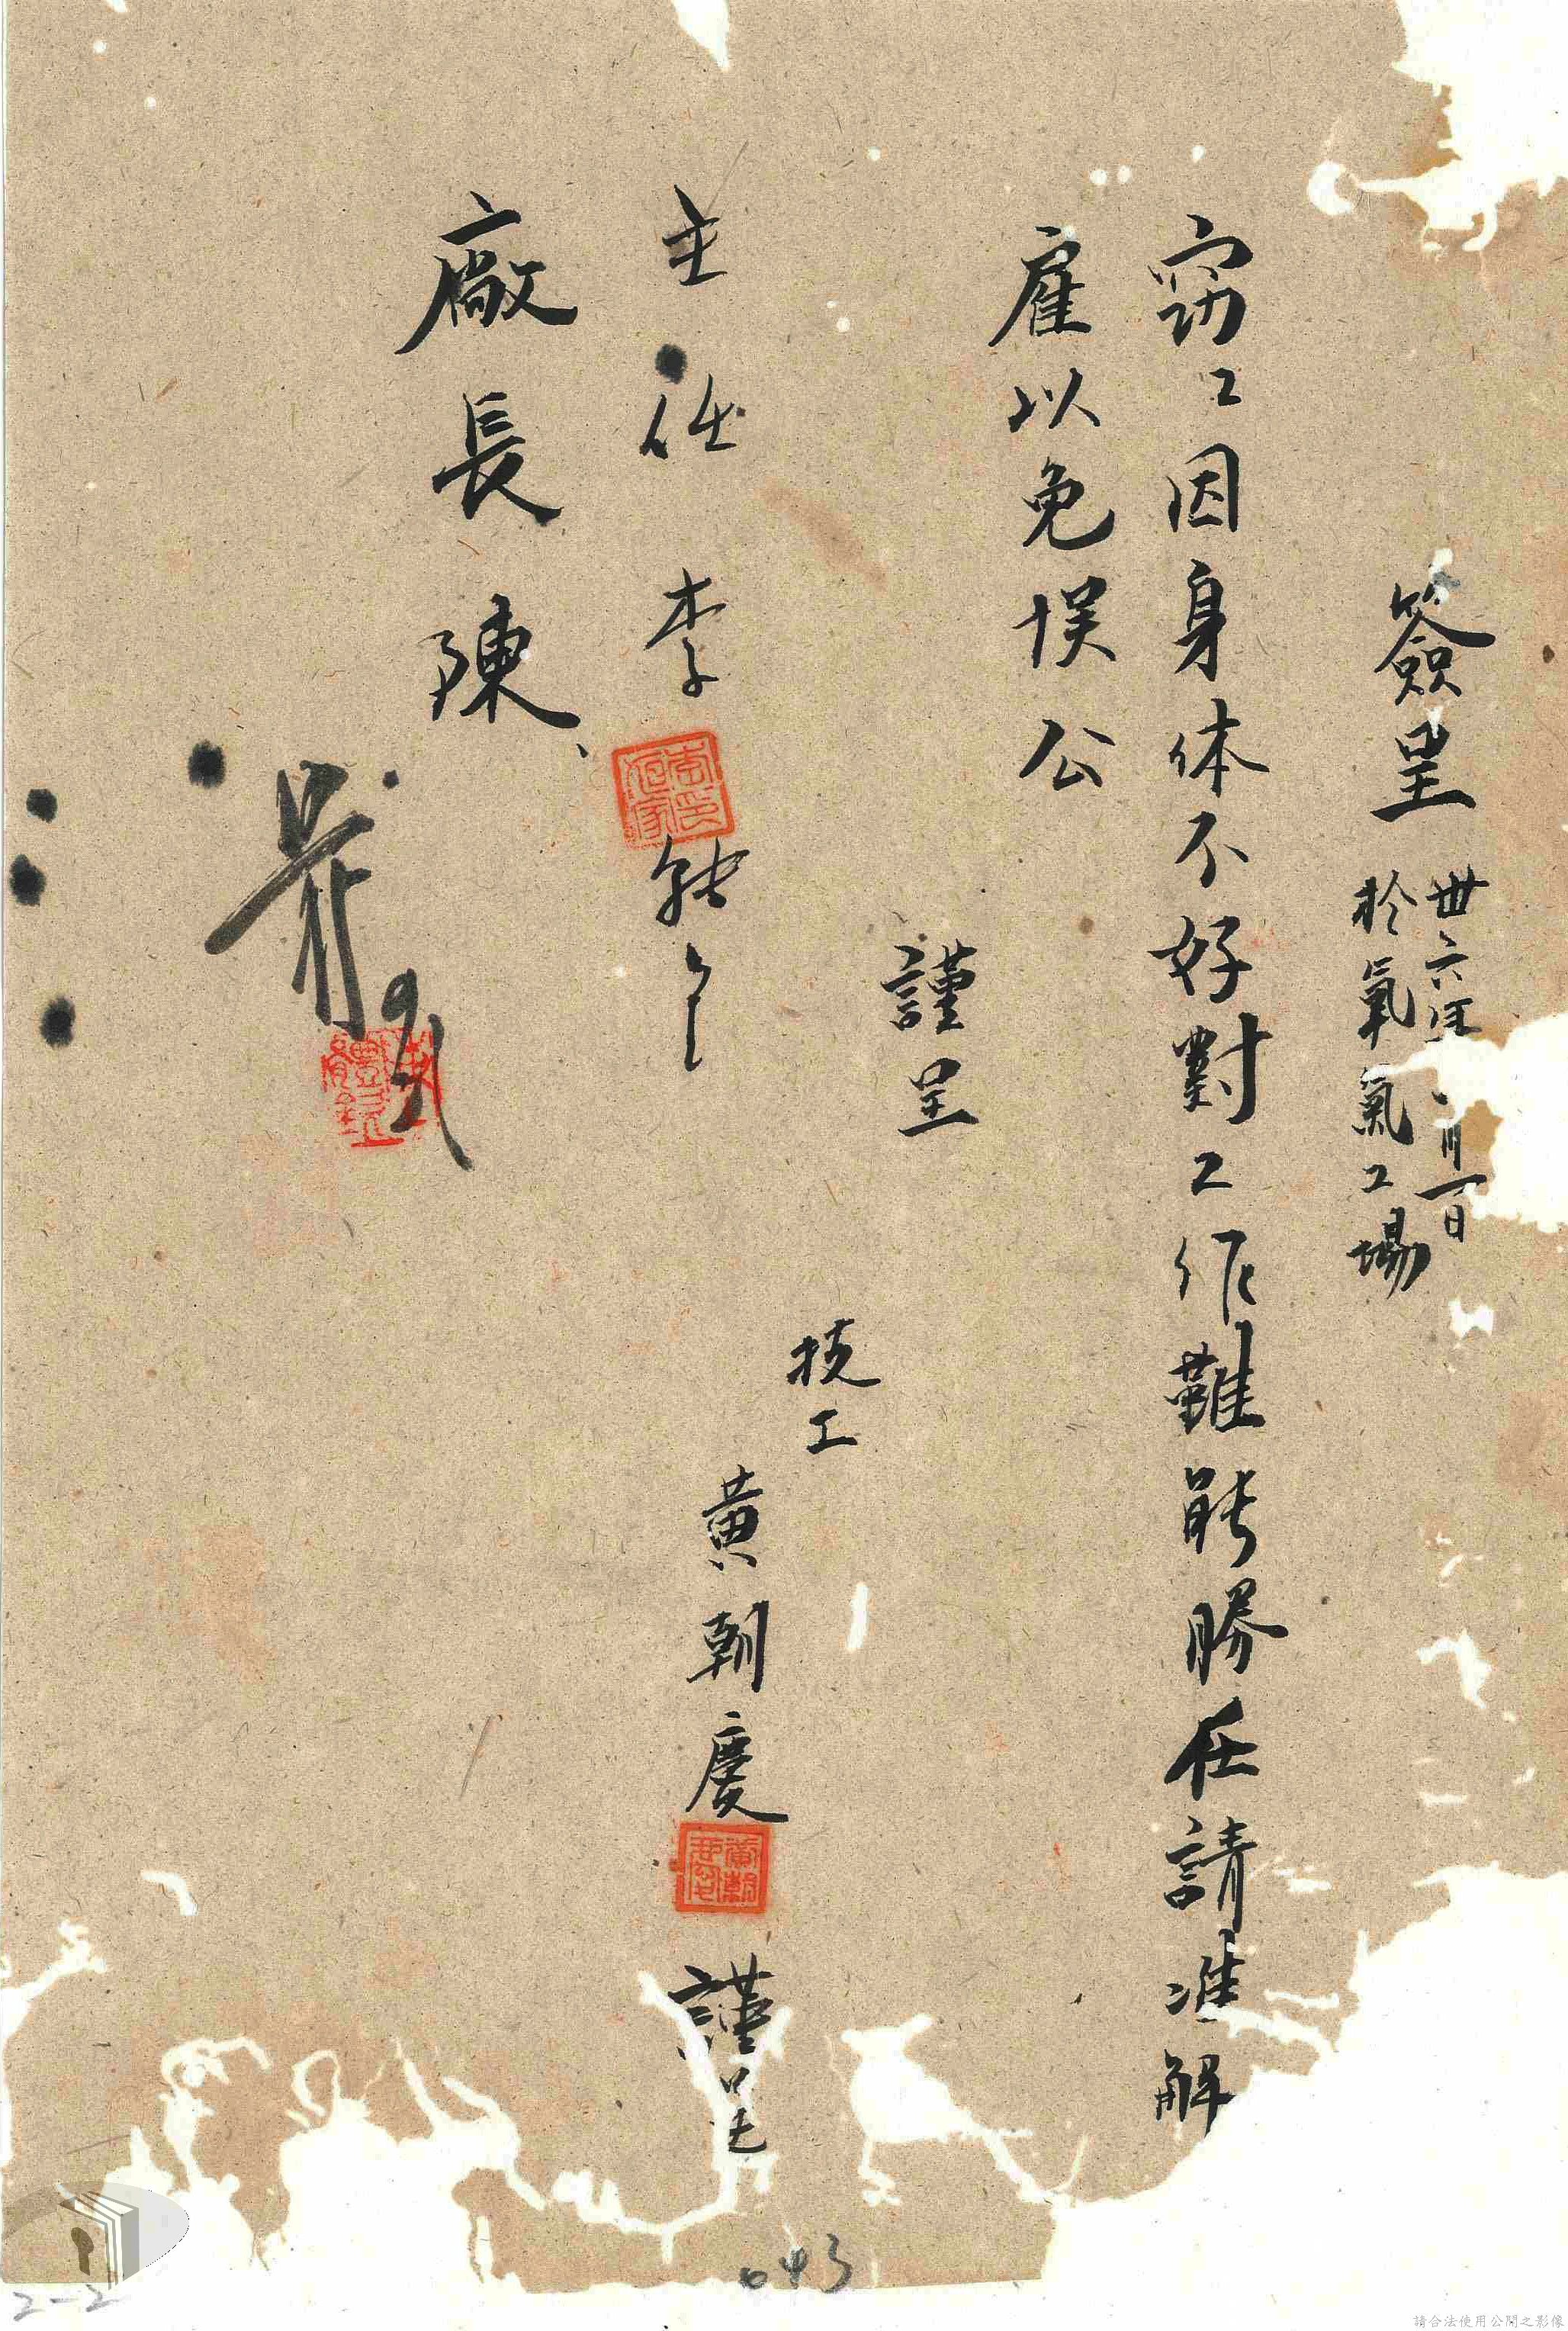 簽呈
卅六年 月一日
於氧氣工場
窃工因身体不好對工作難能勝任請准解
雇以免悮公
謹呈
技工
黄朝慶 謹呈
主任李
廠長陳
043
2-2
請合法使用公開之影像